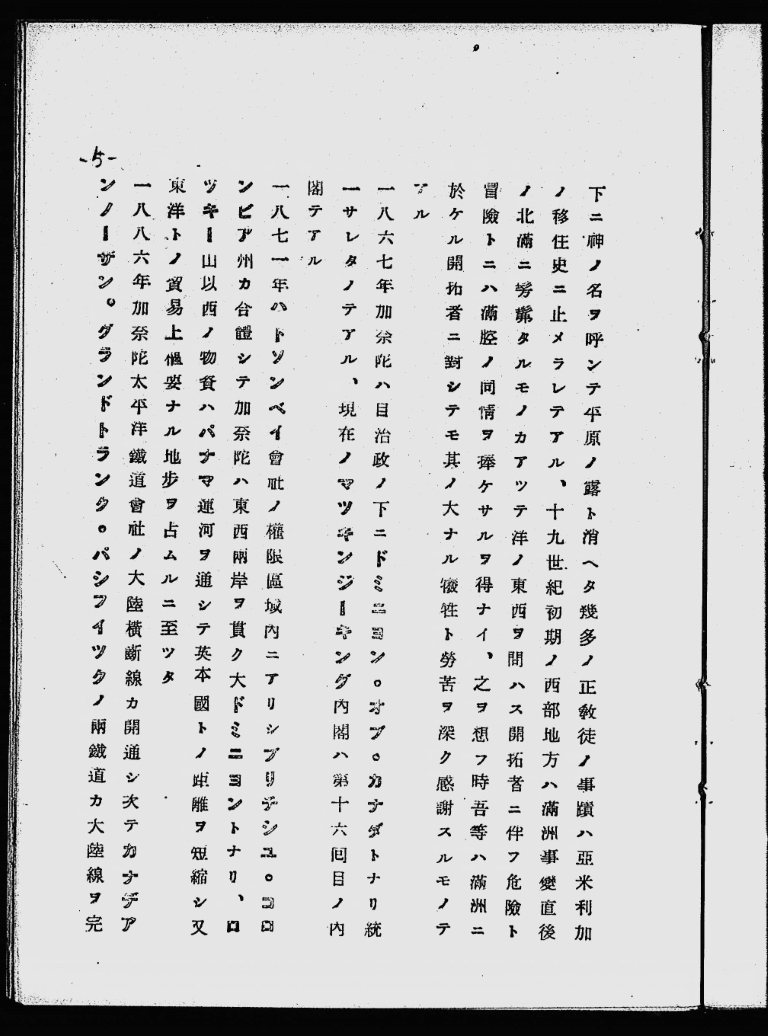 -5-
下ニ神ノ名ヲ呼ンテ平原ノ露ト消ヘタ幾多ノ正敎徒ノ事蹟ハ亞米利加
ノ移住史ニ止メラレテアル、十九世紀初期ノ西部地方ハ滿洲事變直後
ノ北滿ニ髣髴タルモノカアツテ洋ノ東西ヲ問ハス開拓者ニ伴フ危險ト
冒險トニハ滿腔ノ同情ヲ捧ケサルヲ得ナイ、之ヲ想フ時吾等ハ滿洲ニ
於ケル開拓者ニ對シテモ其ノ大ナル犧牲ト勞苦ヲ深ク感謝スルモノテ
アル
一八六七年加奈陀ハ自治政ノ下ニドミニヨン。オブ。カナダトナリ統
一サレタノテアル、現在ノマツキンジーキング內閣ハ第十六囘目ノ內
閣テアル
一八七一年ハトソンベイ會社ノ權限區域內ニアリシブリチシユ。コロ
ンビア州カ合體シテ加奈陀ハ東西兩岸ヲ貫ク大ドミニヨントナリ、ロ
ツキー山以西ノ物資ハパナマ運河ヲ通シテ英本國トノ距離ヲ短縮シ又
東洋トノ貿易上樞要ナル地步ヲ占ムルニ至ツタ
一八八六年加奈陀太平洋鐵道會社ノ大陸橫斷線カ開通シ次テカナデア
ンノーザン。グランドトランク。パシフイツクノ兩鐵道カ大陸線ヲ完